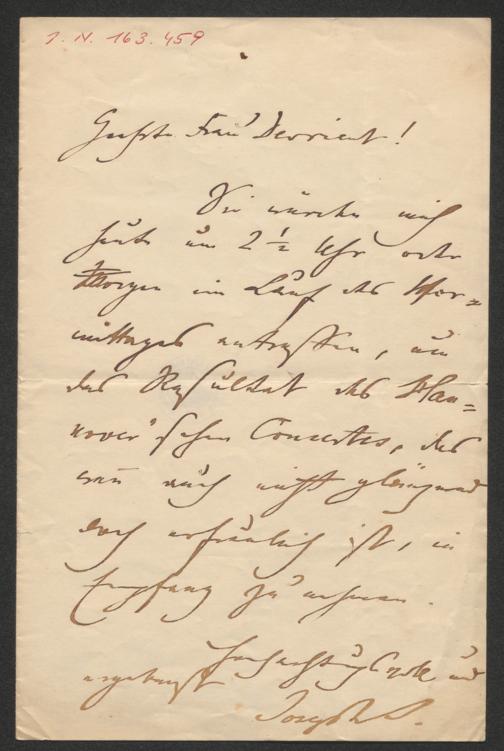 I. N. 163.459
Geehrte Frau Devrient!
Sie würden mich
heute um 2 ½ Uhr oder
Morgen im Lauf des Vor=
mittages antreffen, um
das Resultat des Han=
nover'schen Concertes, das
wenn auch nicht glänzend
doch erfreulich ist, in
Empfang zu nehmen.
Hochachtungsvoll und
ergebenst
Joseph